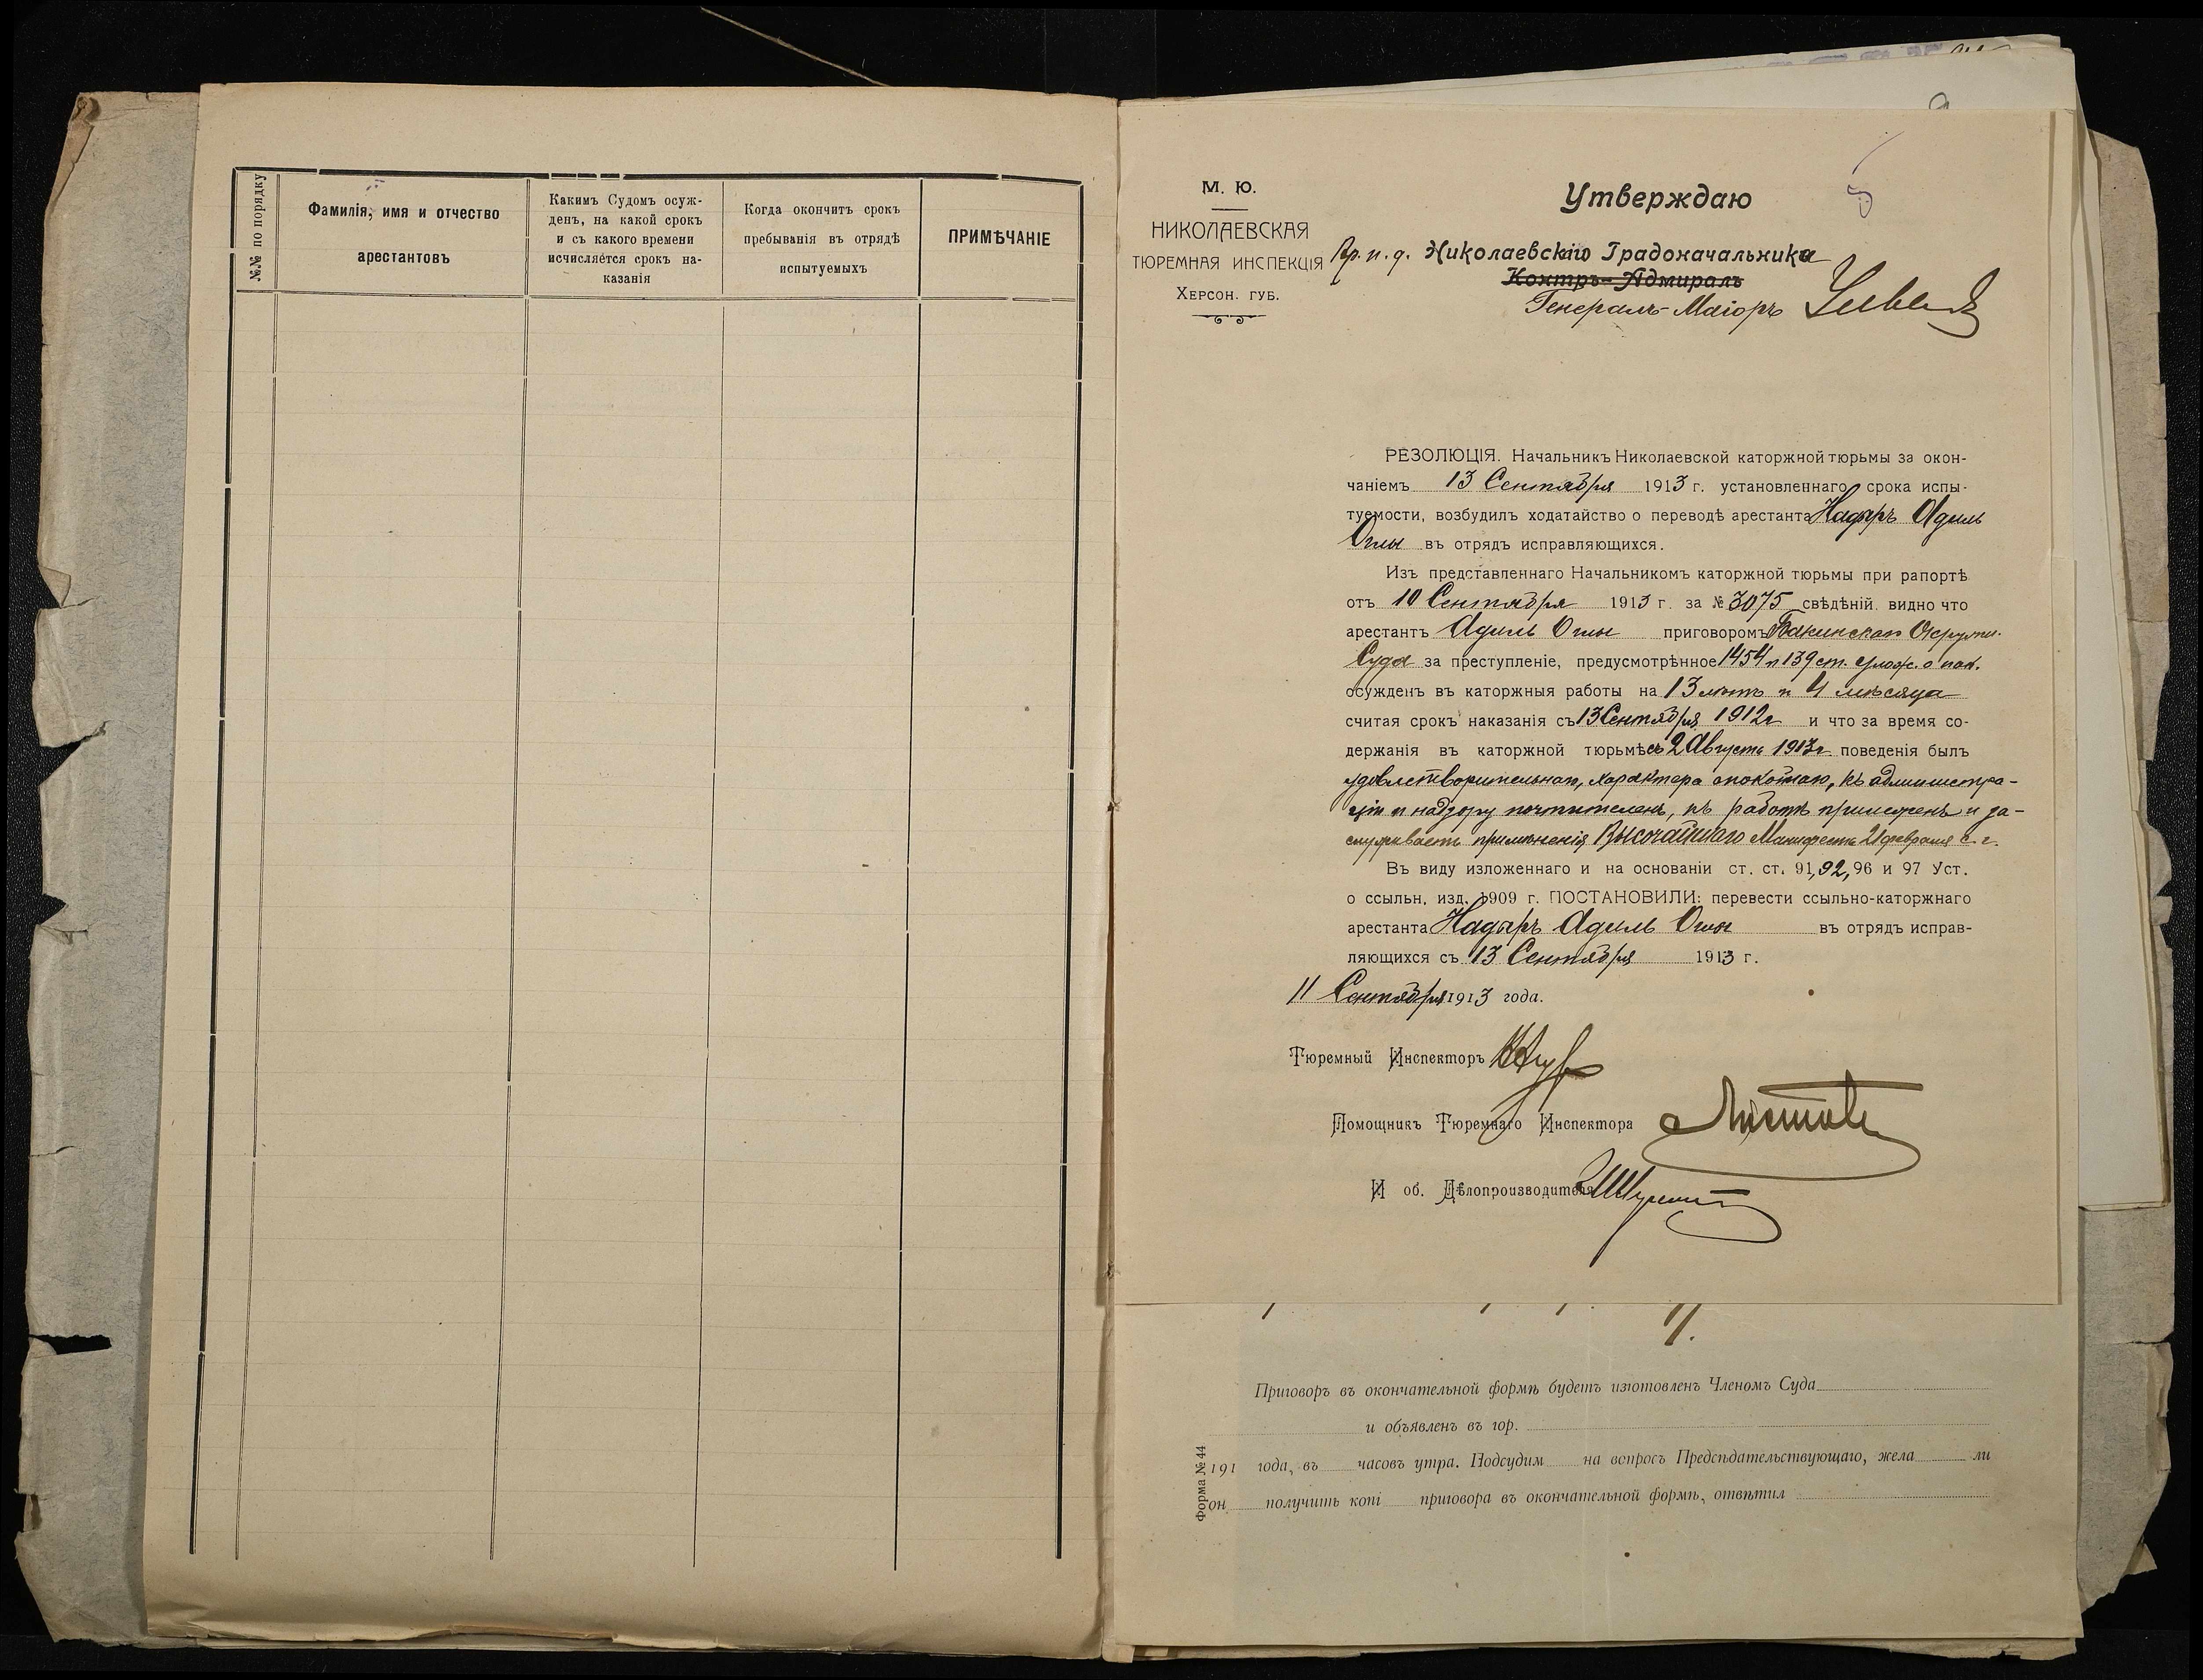 №№ по порядку
Фамилія, имя и отчество
арестантовъ
Какимъ Судомъ осуж-
денъ, на какой срокъ
и съ какого времени
исчисляется срокъ на-
казанія
Когда окончитъ срокъ
пребыванія въ отрядѣ
испытуемыхъ
ПРИМѢЧАНІЕ
М. Ю.
НИКОЛАЕВСКАЯ
ТЮРЕМНАЯ ИНСПЕКЦІЯ
ХЕРСОН. ГУБ.
5
Утверждаю
Вр. и. д. Николаевскаго Градоначальника
Контръ-Адмиралъ
Генералъ-Маіоръ
РЕЗОЛЮЦІЯ. Начальникъ Николаевской каторжной тюрьмы за окон-
чаніемъ 13 Сентября 1913 г. установленнаго срока испы-
туемости, возбудилъ ходатайство о переводѣ арестанта Надыръ Адиль
Оглы въ отрядъ исправляющихся.
Изъ представленнаго Начальникомъ каторжной тюрьмы при рапортѣ
отъ 10 Сентября 1913 г. за № 3075 свѣдѣній видно что
арестантъ Адиль Оглы приговоромъ Бакинскаго Окружн.
Суда за преступленіе, предусмотрѣнное 1454 и 139 ст. улож. о нак.
осужденъ въ каторжныя работы на 13 лѣтъ и 4 мѣсяца
считая срокъ наказанія съ 13 Сентября 1912 г и что за время со-
держанія въ каторжной тюрьмѣ съ 2 Августа 1913 г поведенія былъ
удовлетворительнаго, характера спокойнаго, къ администра-
ціи и надзору почтителенъ, къ работѣ прилеженъ и за-
служиваетъ примѣненія Высочайшаго Манифеста 21 февраля с. г.
Въ виду изложеннаго и на основаніи ст. ст. 91, 92, 96 и 97 Уст.
о ссыльн. изд. 1909 г. ПОСТАНОВИЛИ: перевести ссыльно-каторжнаго
арестанта Надыръ Адиль Оглы въ отрядъ исправ-
ляющихся съ 13 Сентября 1913 г.
11 Сентября 1913 года.
Тюремный Инспекторъ
Помощникъ Тюремнаго Инспектора
И об. Дѣлопроизводителя
Приговоръ въ окончательной формѣ будетъ изготовленъ Членомъ Суда
и объявленъ въ гор.
191 года, въ часовъ утра. Подсудим на вопросъ Предсѣдательствующаго, жела ли
он получить копі приговора въ окончательной формѣ, отвѣтил
Форма № 44